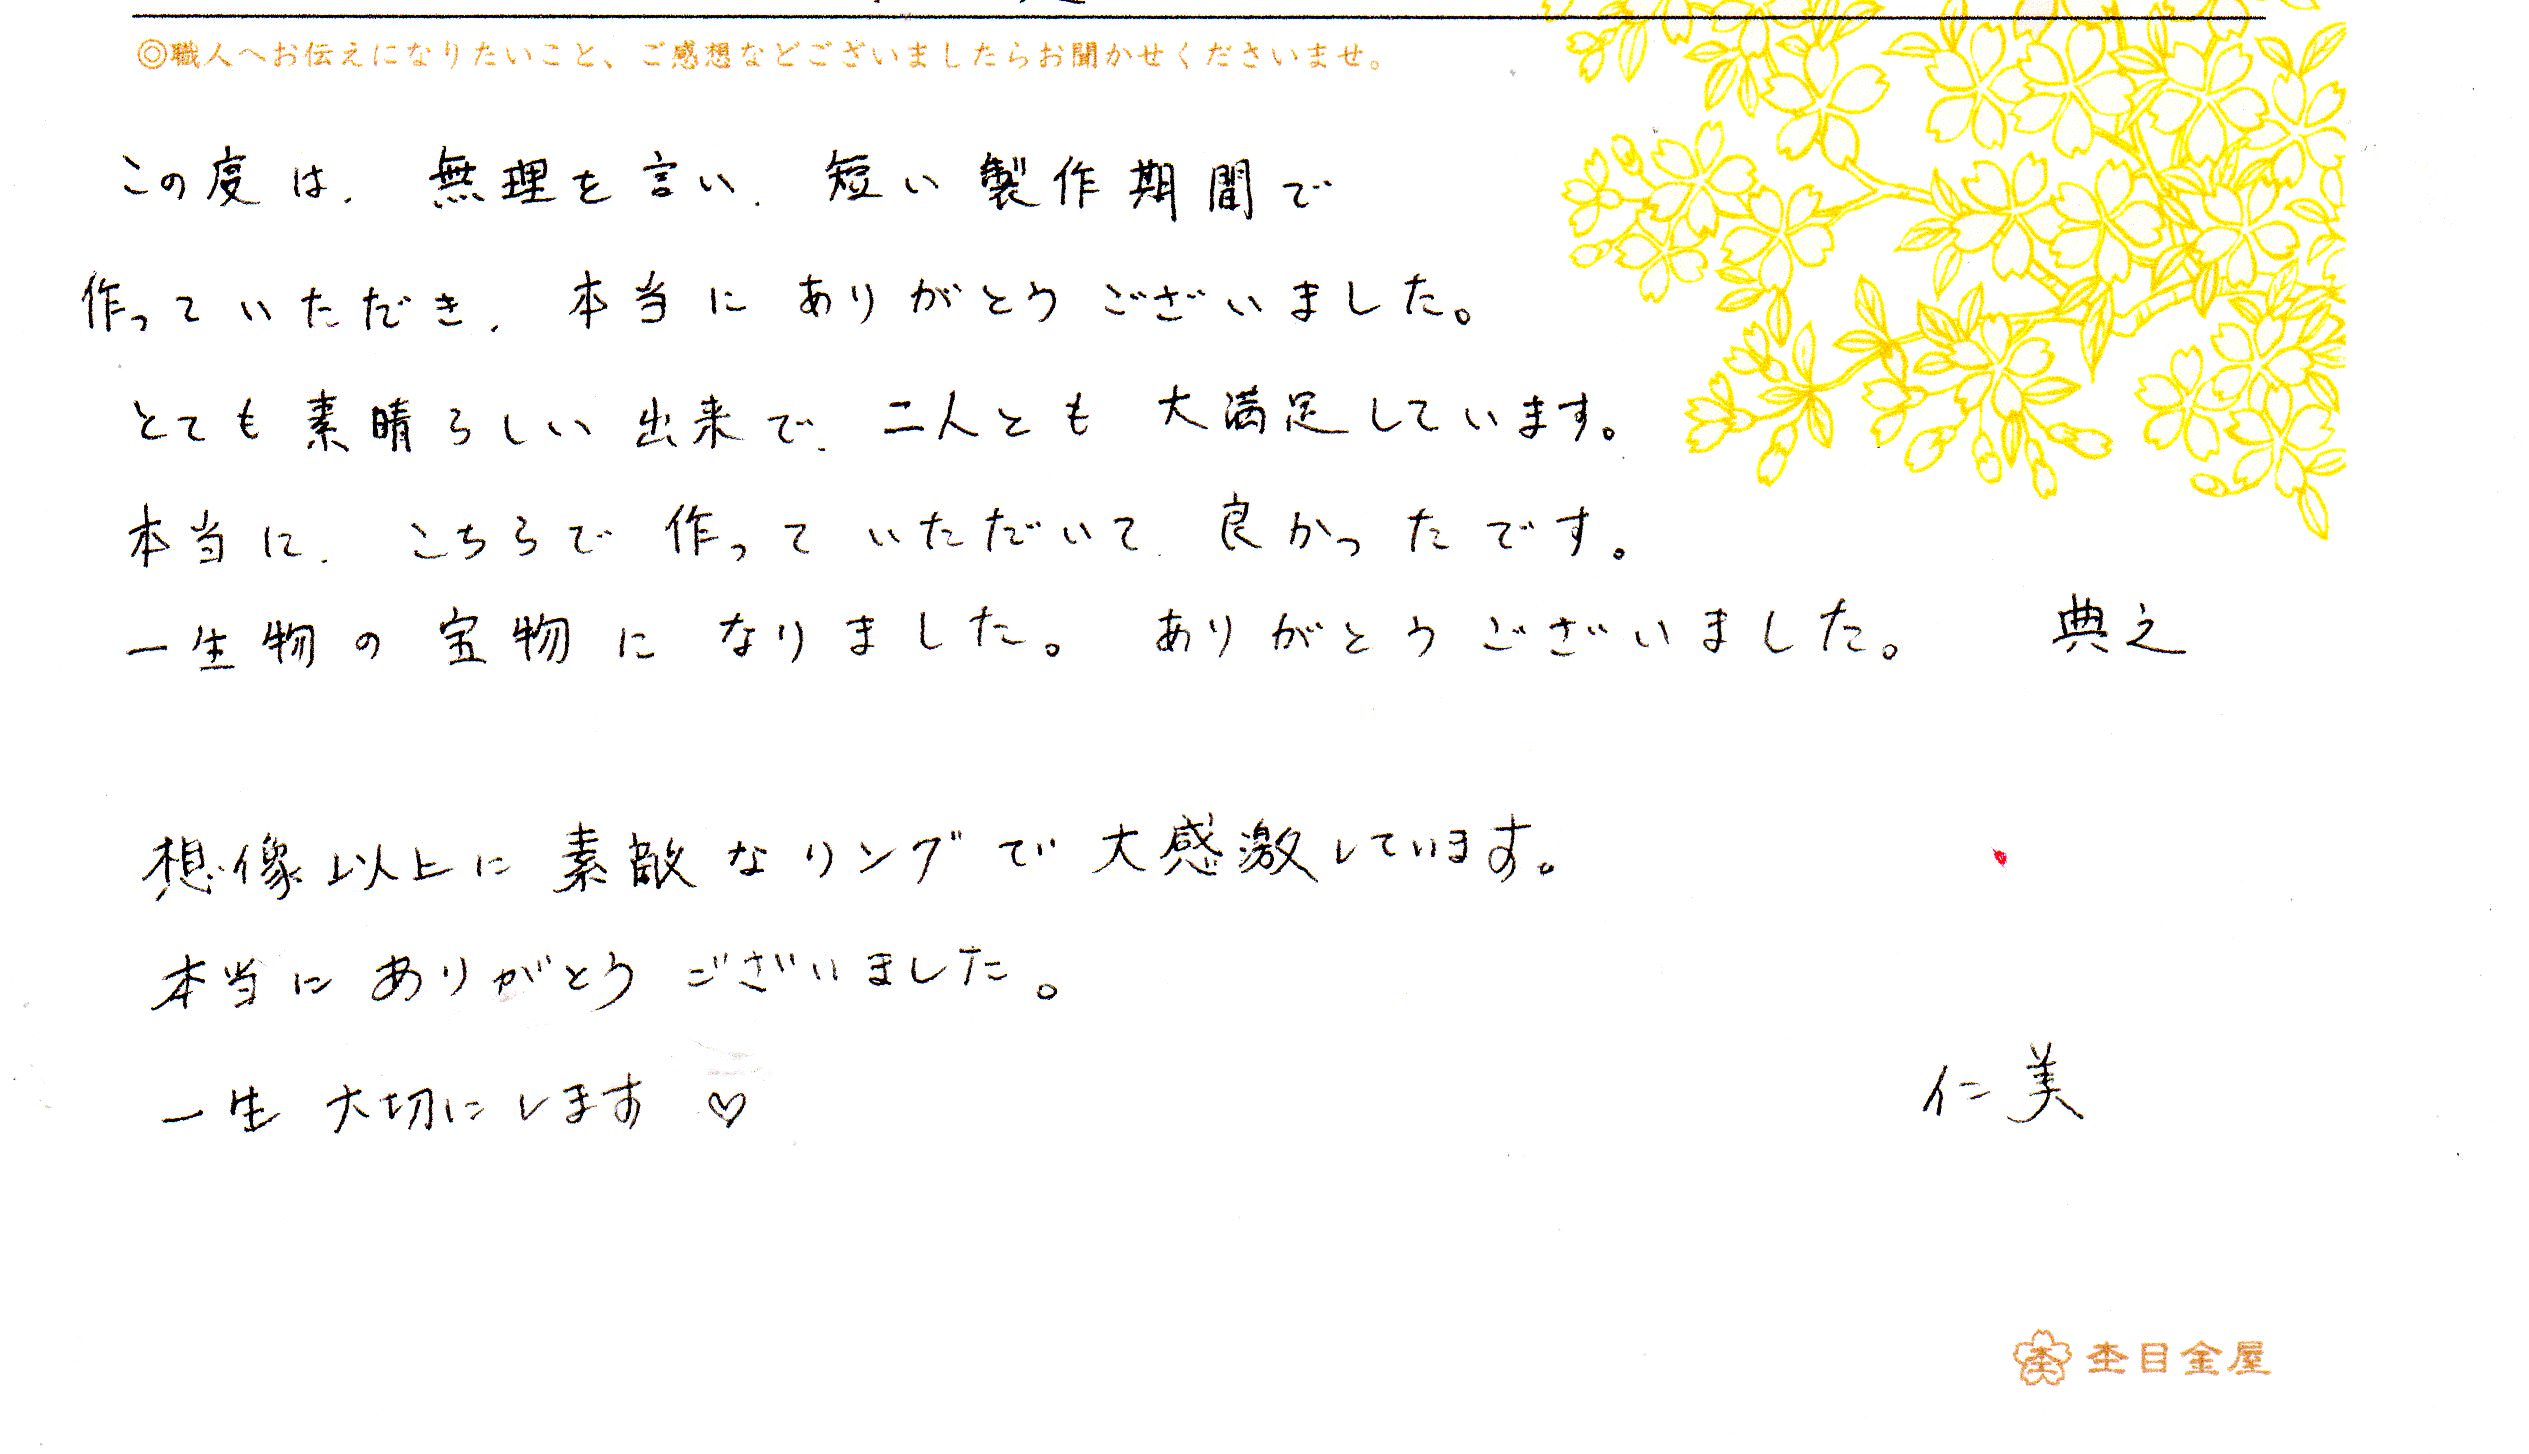 ◎職人へお伝えになりたいこと、ご感想などございましたらお聞かせくださいませ。
この度は、無理を言い、短い製作期間で
作っていただき、本当にありがとうございました。
とても素晴らしい出来で、二人とも大満足しています。
本当に、こちらで作っていただいて、良かったです。
一生物の宝物になりました。ありがとうございました。 典之
想像以上に素敵なリングで大感激しています。
本当にありがとうございました。
一生大切にします♡
仁美
杢目金屋